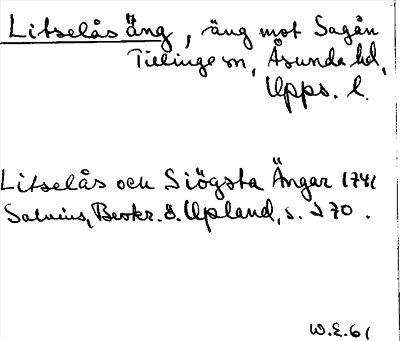 Litselås äng, äng mot Sagån
Tillinge sn, Åsunda hd,
Upps. l.
Litselås och Siögsta Ängar 1741
Salvius, Beskr. ö. Upland, s. 270.
W.E. 61